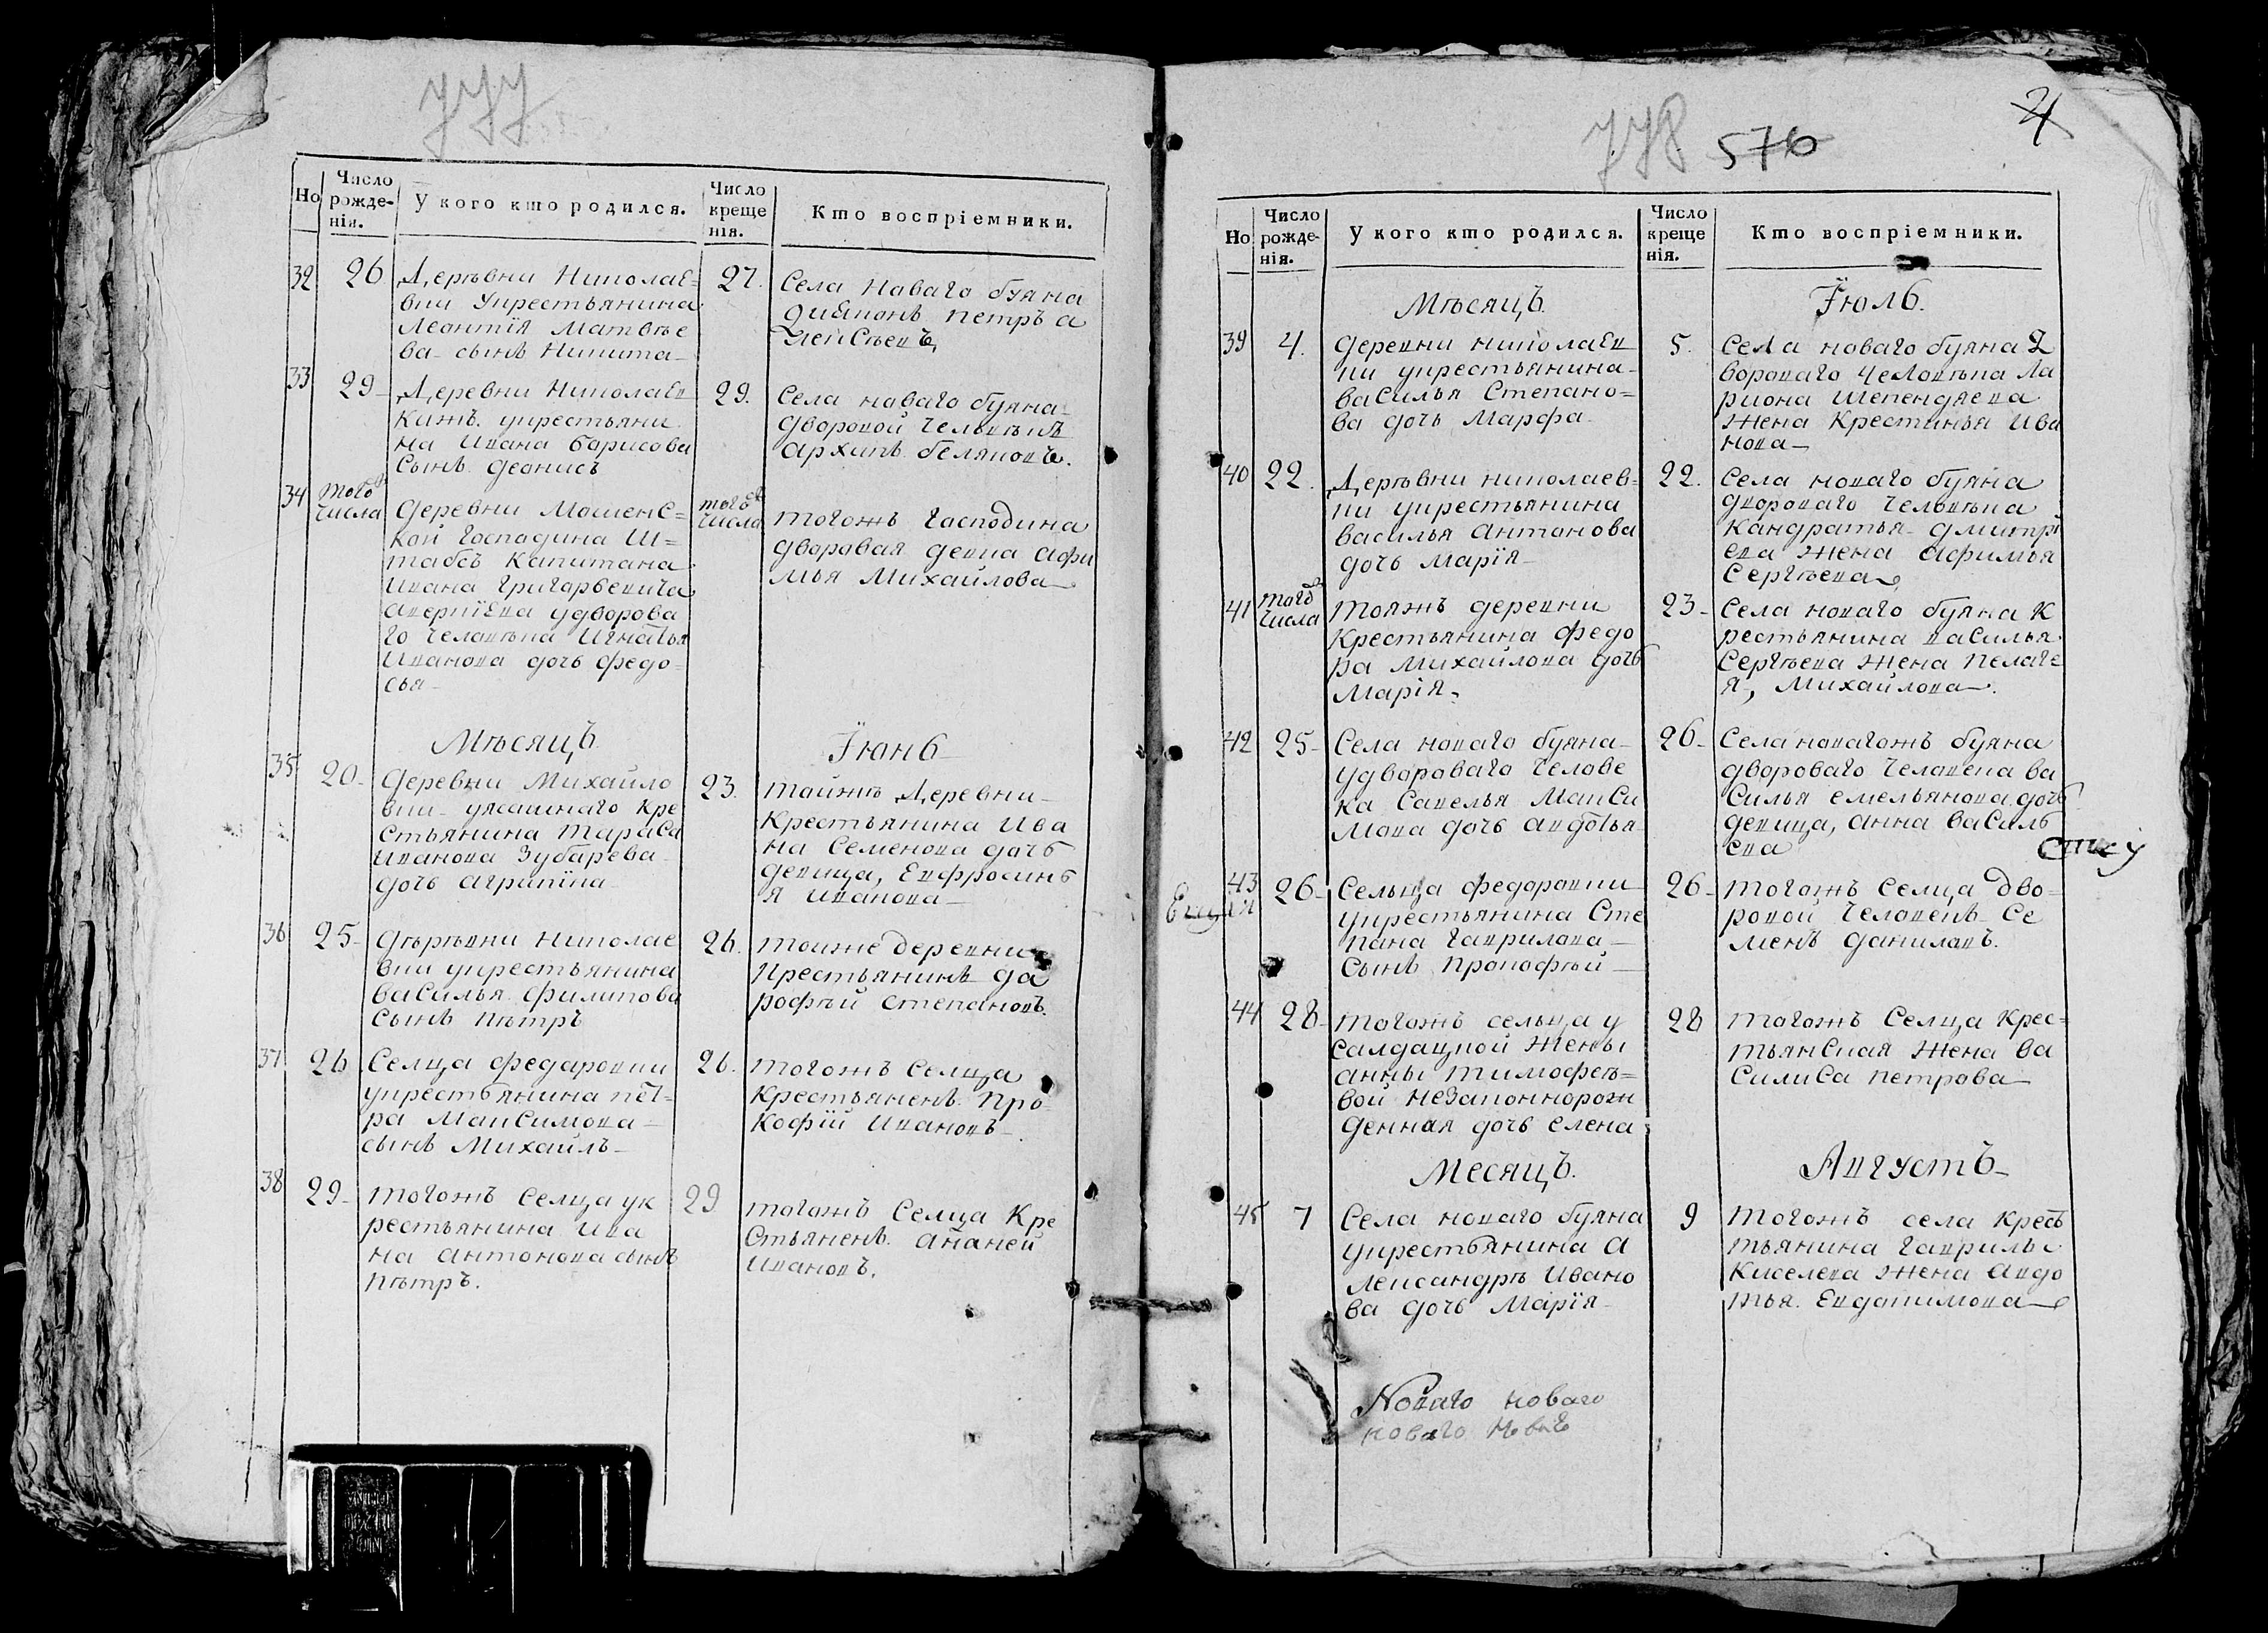 777
Но
Число рожденія.
У кого кто родился.
Число крещенія.
Кто воспріемники.
32
26
Дерѣвни Николаев=
вки Укрестьянина
Леонтïя Матвѣе
ва сынъ Никита
27.
Села Новаго буяна
Дияконъ петръ а
лексѣевъ,
33
29
Деревни Николаев
кижъ укрестьяни
на Ивана барисова
сынъ деонисъ
29.
Села новаго буяна
дворовой человѣкъ
архипъ беляковъ.
34
того
числа
деревни Машенс=
кой господина Ш=
табсъ Капитана
Ивана григорьевича
аверкïева удворова
го человѣка Игнатья
Иванова дочь федо=
сья
того
числа
тогожъ гасподина
дворовая девка афи
мья Михайлова
Мѣсяцъ
Їюнь
35
20
деревни Михайло
вки ке
стьянина тараса
иванова Зубарева
дочь агрипïна
23.
тойжъ Деревни
крестьянина ива
на Семенова дочь
девица, Евфросинь
я иванова
36
25
дѣрѣвни николае
вки укрестьянина
василья филипова
сынъ пѣтръ
26.
тоиже деревни
крестьянинъ да
рофѣй степановъ.
37
26
Селца федаровки
укрестьянина пет=
ра Максимова
сынъ Михайлъ
26.
тогожъ селца
крестьяненъ про
кофïй ивановъ
38
29
тогожъ селца ук
рестьянина ива
на антонова сынъ
пѣтръ.
29
тогожъ селца кре
стьяненъ ананей
ивановъ.
778
576
4
Но
Число рожденія.
У кого кто родился.
Число крещенія.
Кто воспріемники.
Мѣсяцъ.
Їюль.
39
4.
деревни николаев
ки укрестьянина
василья Степано=
ва дочь Марфа
5.
Села новаго буяна д
вороваго человѣка ла
риона шепендяева
жена крестинья ива
нова
40
22.
Дерѣвни николаев=
ки укрестьянина
василья антонова
дочь марïя
22.
Села новаго буяна
двороваго человѣка
кандратья дмитрï
ева жена афимья
Сергѣева
41
того
числа
тояжъ деревни
крестьянина федо
ра михайлова дочь
марïя.
23
Села новаго буяна к
рестьянина василья
Сергѣева жена пелаге
я, михайлова.
42
25
Села новаго буяна
удвороваго челове
ка савелья макси
мова дочь авдотья
26
Села новагожъ буяна
двороваго человека ва
силья емельянова дочь
девица, анна василь
ева
43
26
Сельца федаровки
укрестьянина сте
пана гаврилова
сынъ прокофѣй
26
тогожъ селца дво=
ровой человекъ се
менъ даниловъ.
44
28
тогожъ сельца у
салдацкой жены
анны тимофеѣ=
вой незаконнорож
денная дочь елена
28
тогожъ селца крес=
тьянская жена ва
силиса петрова
Месяцъ.
Августъ
45
7
Села новаго буяна
укрестьянина а
лександрѣ ивано
ва дочь марïя
9
тогожъ села кресь
тьянина гаврилы
киселева жена авдо
тья. Евдокимова
Новаго новаго
новаго новаго